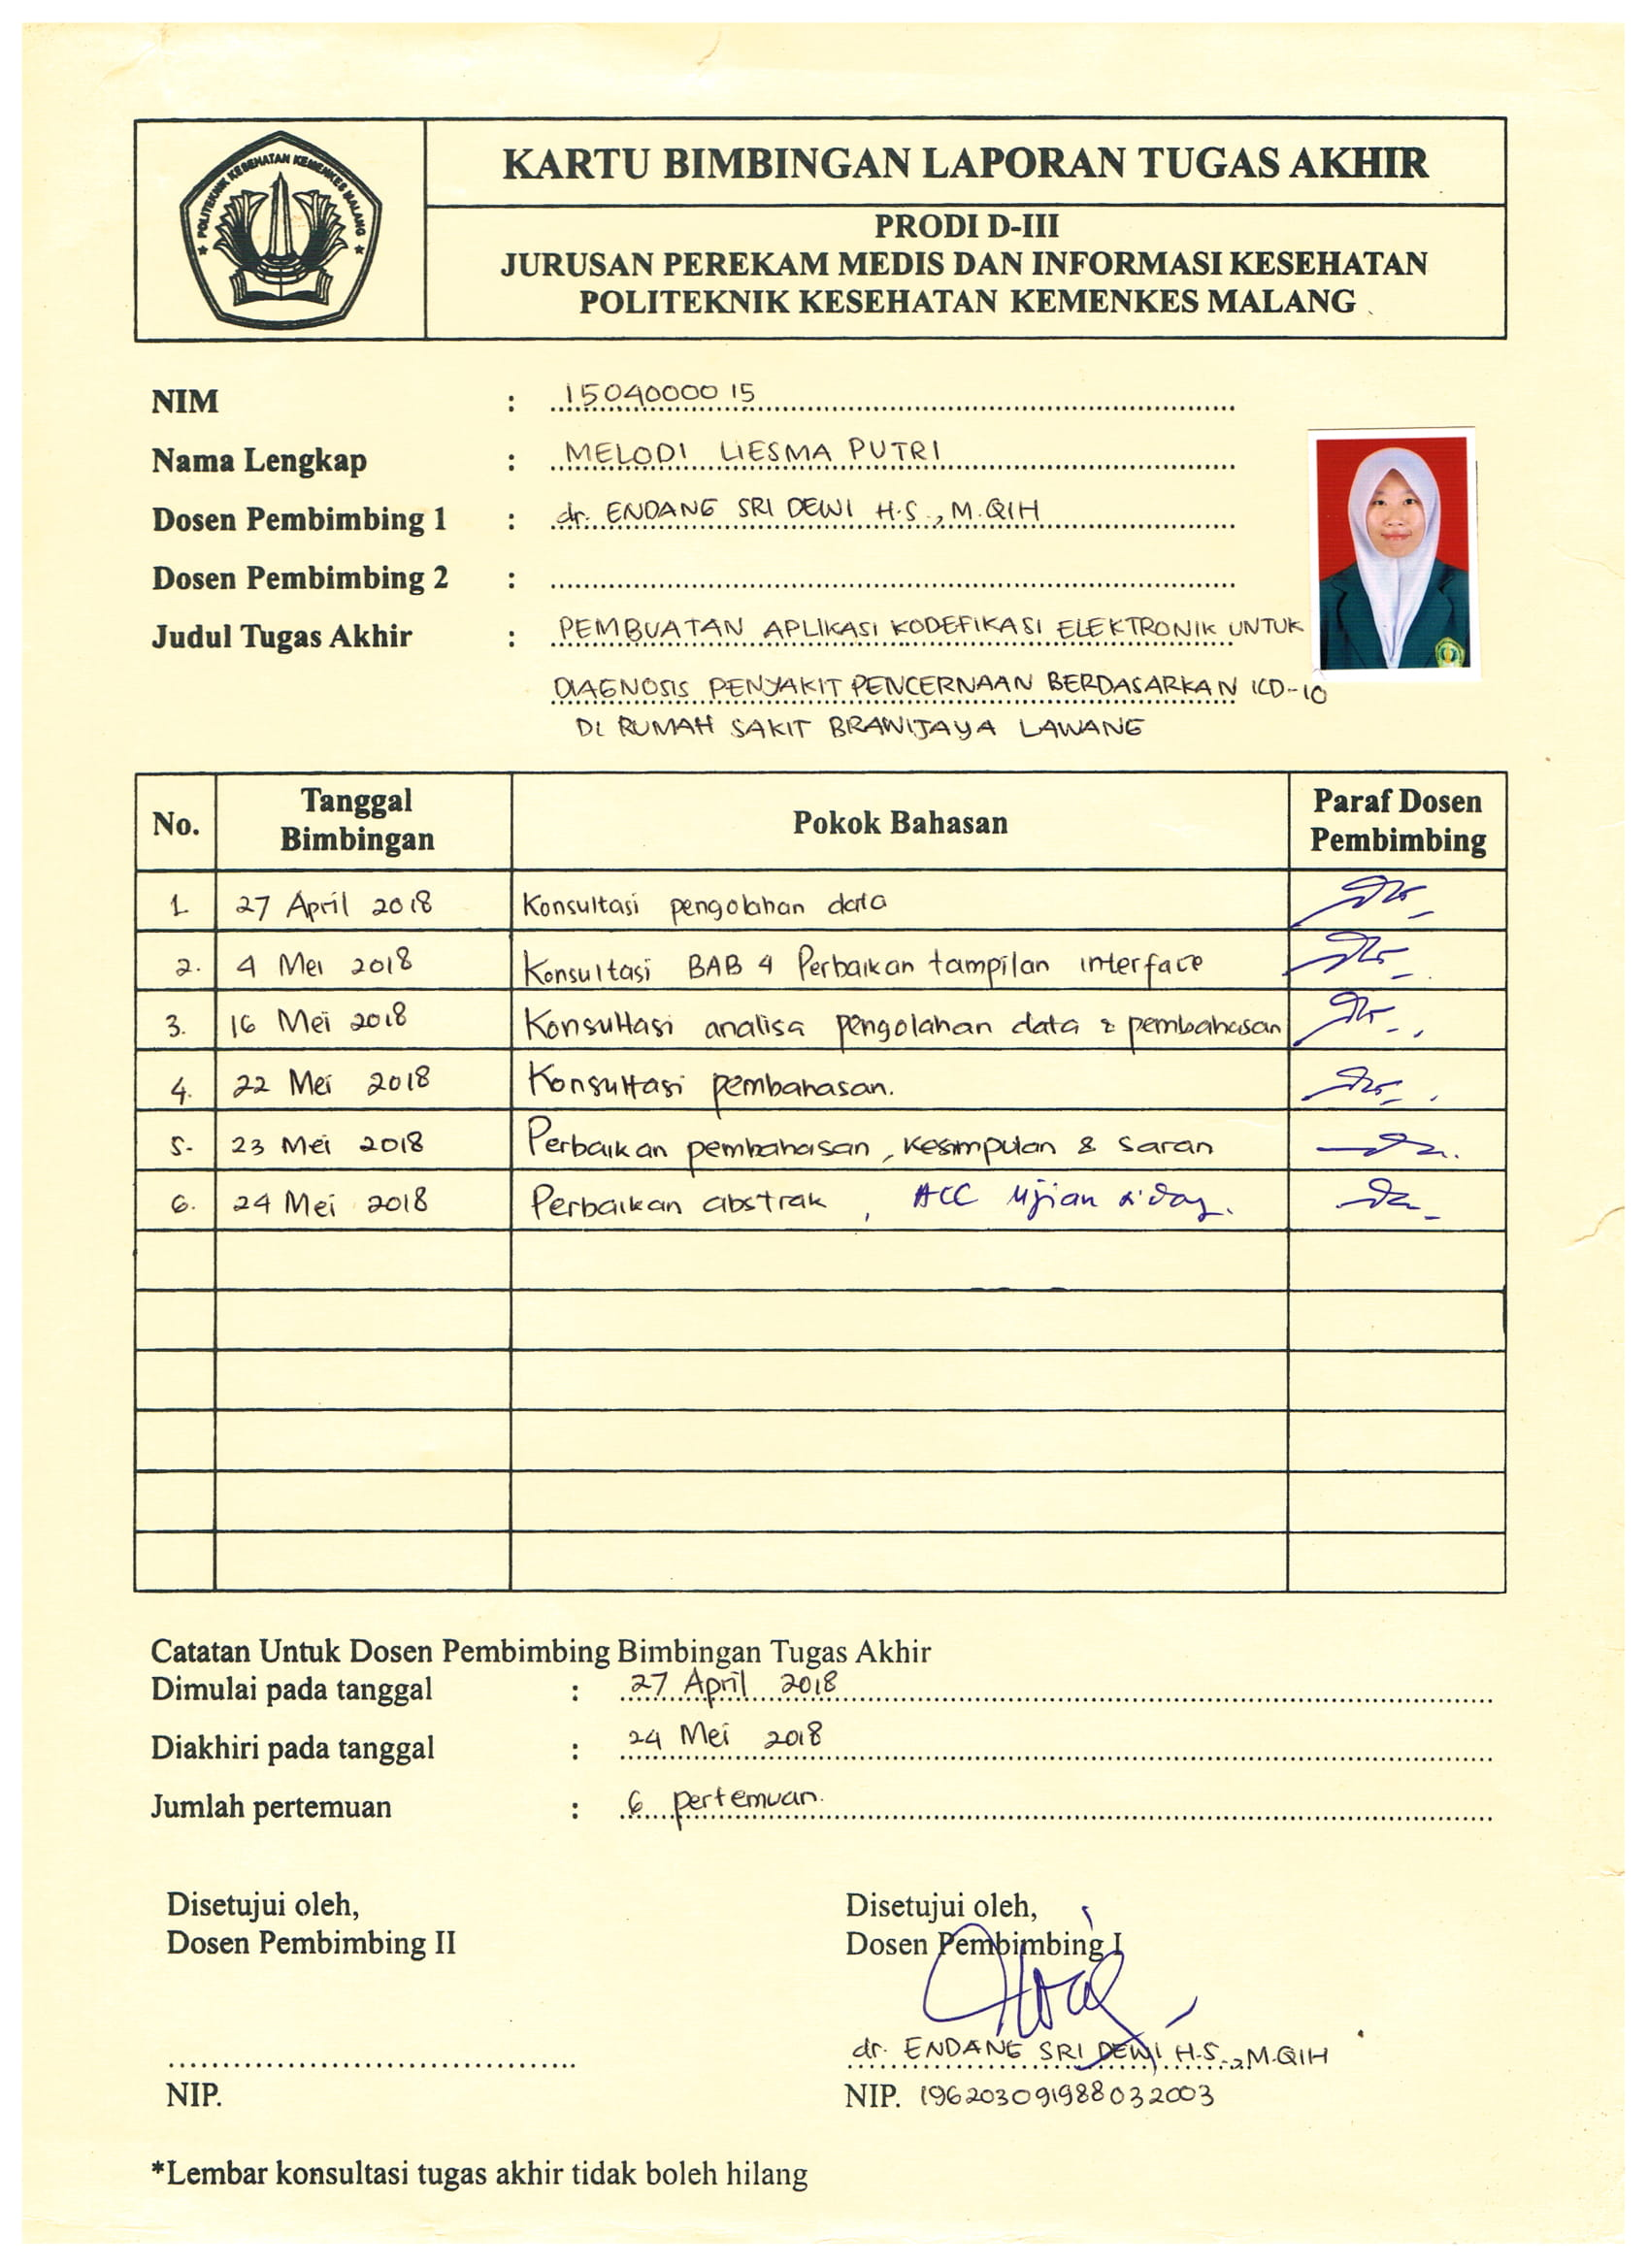 POLITEKNIK KESEHATAN KEMENKES MALANG
KARTU BIMBINGAN LAPORAN TUGAS AKHIR
PRODI D-III
JURUSAN PEREKAM MEDIS DAN INFORMASI KESEHATAN
POLITEKNIK KESEHATAN KEMENKES MALANG
NIM : 1504000015
Nama Lengkap : MELODI LIESMA PUTRI
Dosen Pembimbing 1 : dr. ENDANG SRI DEWI H.S., M.QIH
Dosen Pembimbing 2 :
Judul Tugas Akhir : PEMBUATAN APLIKASI KODEFIKASI ELEKTRONIK UNTUK
DIAGNOSIS PENYAKIT PENCERNAAN BERDASARKAN ICD-10
DI RUMAH SAKIT BRAWIJAYA LAWANG
No. Tanggal Bimbingan Pokok Bahasan Paraf Dosen Pembimbing
1. 27 April 2018 Konsultasi pengolahan data
2. 4 Mei 2018 Konsultasi BAB 4 Perbaikan tampilan interface
3. 16 Mei 2018 Konsultasi analisa pengolahan data & pembahasan
4. 22 Mei 2018 Konsultasi pembahasan.
5. 23 Mei 2018 Perbaikan pembahasan, kesimpulan & saran
6. 24 Mei 2018 Perbaikan abstrak, ACC Ujian sidang.
Catatan Untuk Dosen Pembimbing Bimbingan Tugas Akhir
Dimulai pada tanggal : 27 April 2018
Diakhiri pada tanggal : 24 Mei 2018
Jumlah pertemuan : 6 pertemuan.
Disetujui oleh, Disetujui oleh,
Dosen Pembimbing II Dosen Pembimbing I
dr. ENDANG SRI DEWI H.S., M.QIH
NIP. NIP. 196203091988032003
*Lembar konsultasi tugas akhir tidak boleh hilang